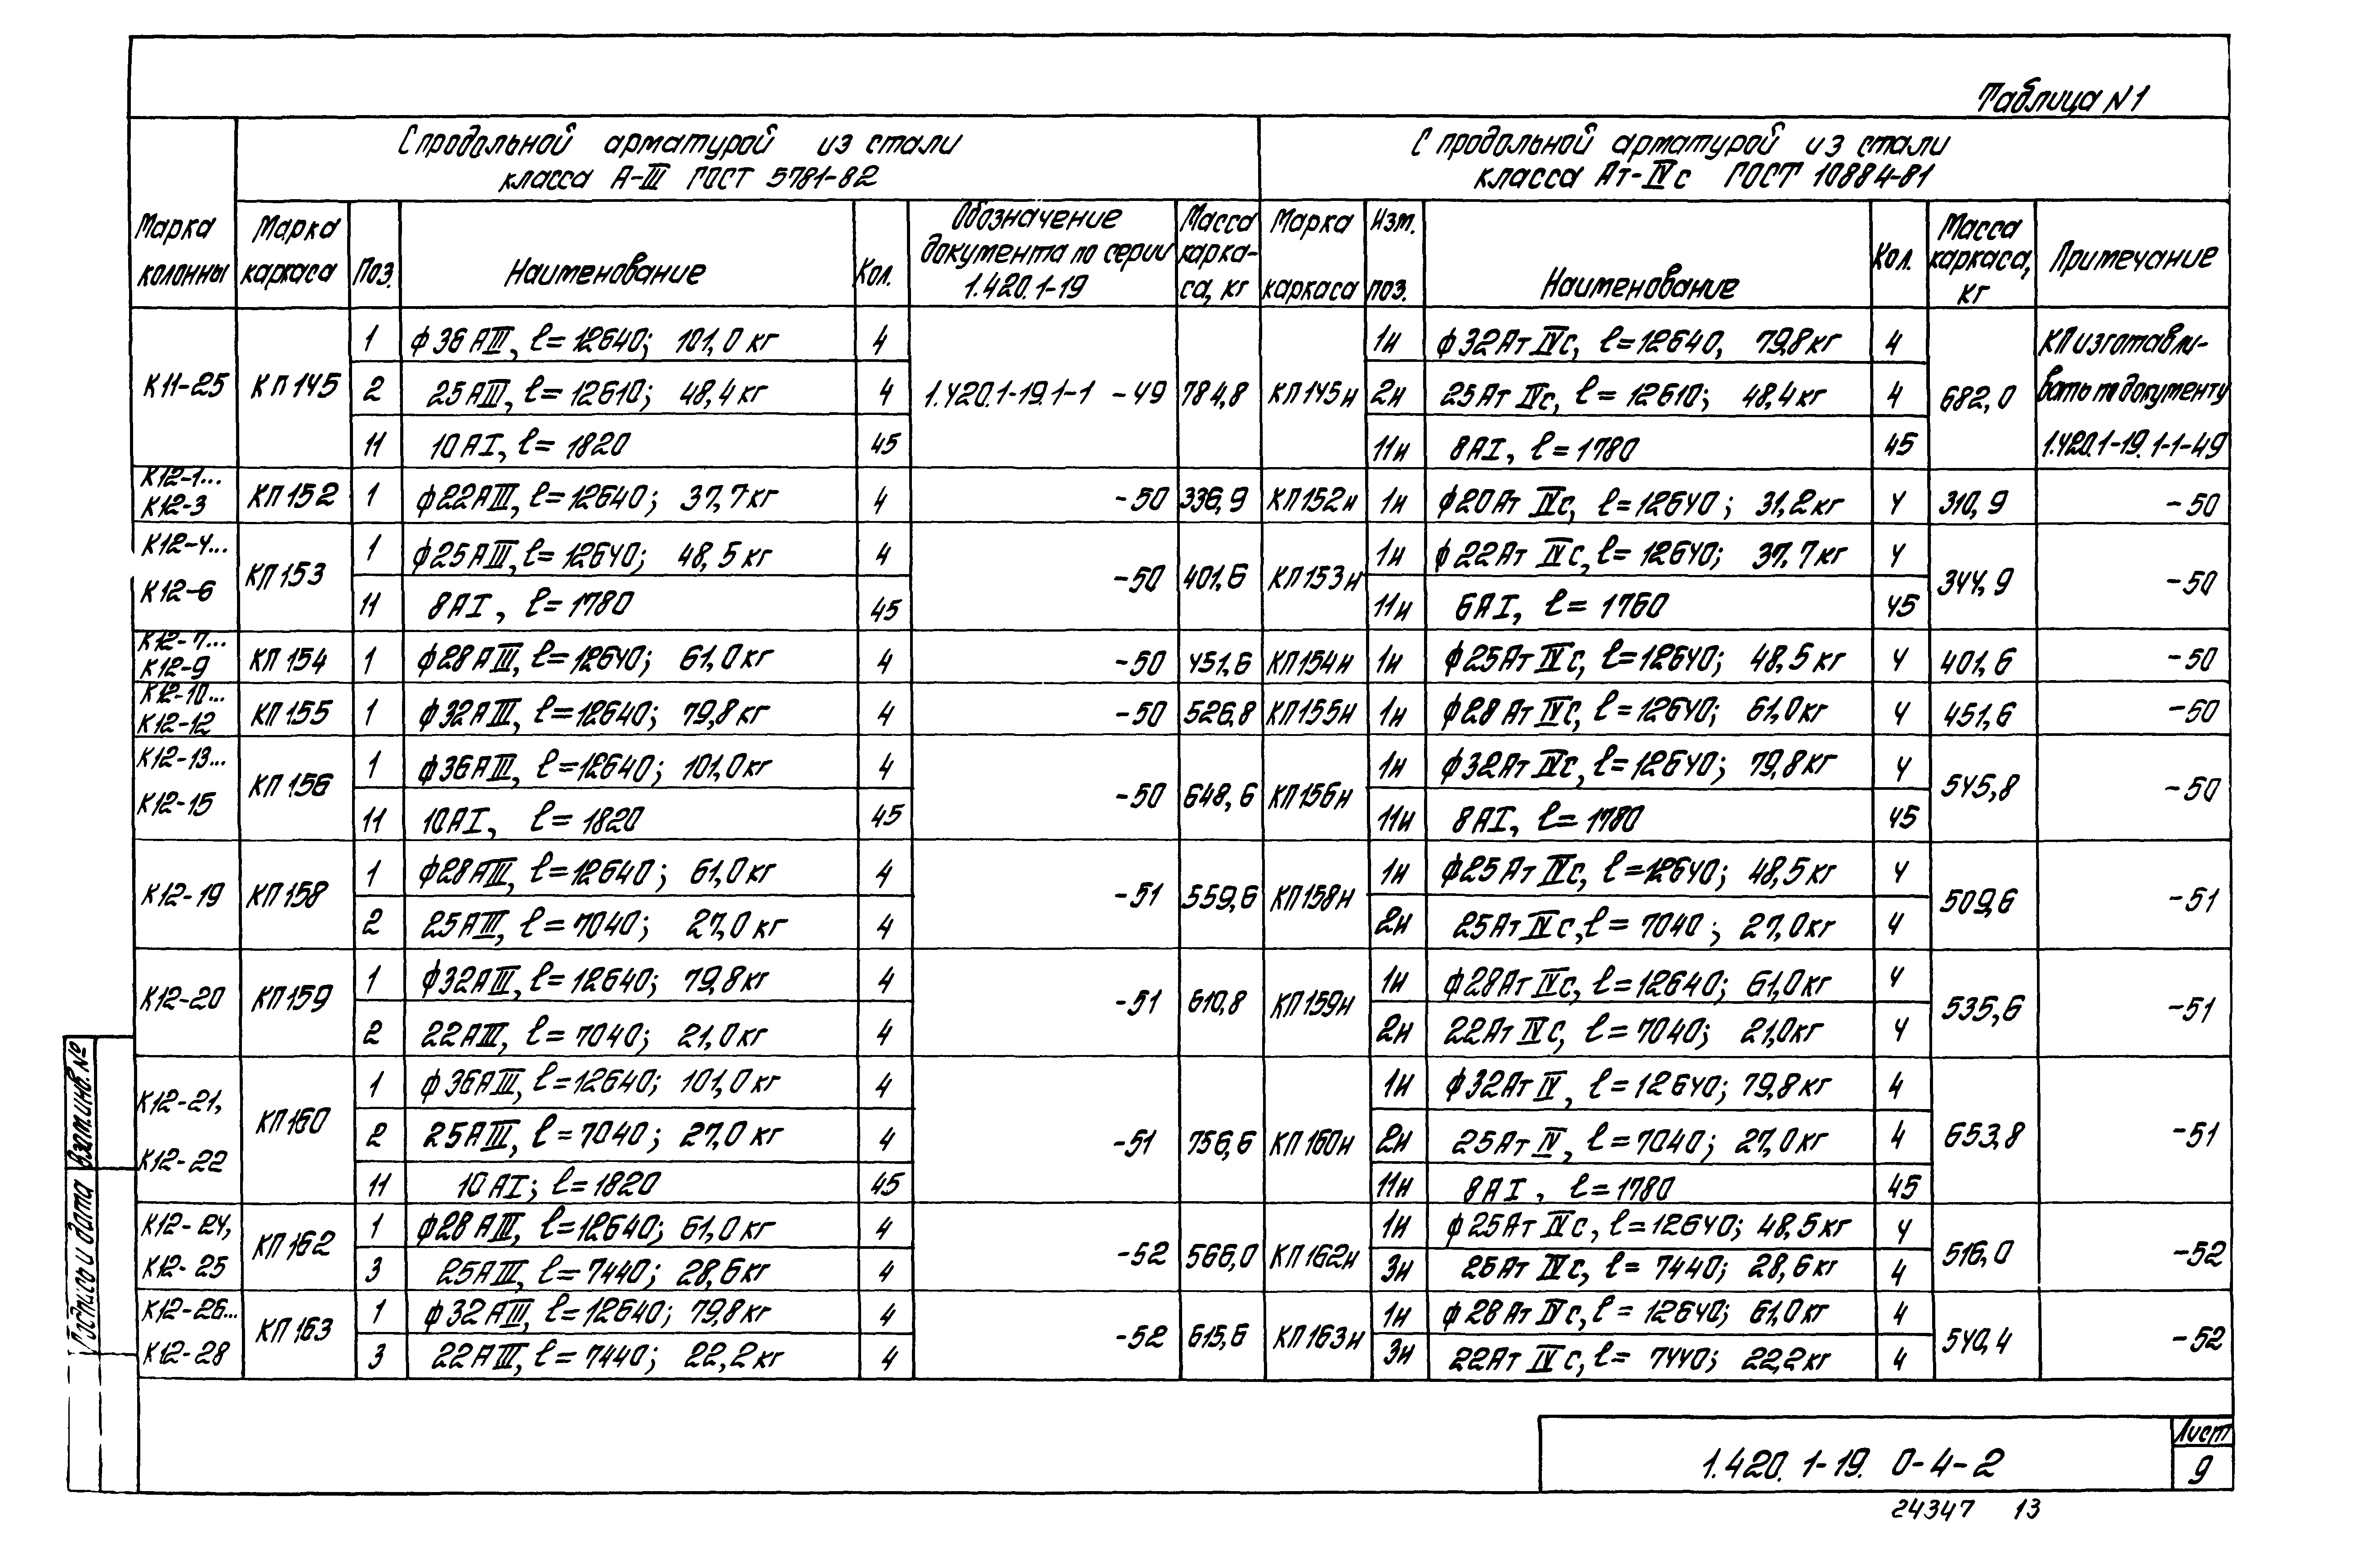 Таблица N1
С продольной арматурой из стали
класса А-III ГОСТ 5781-82
С продольной арматурой из стали
класса Ат-IVс ГОСТ 10884-81
Марка колонны
Марка каркаса
Поз.
Наименование
Кол.
Обозначение документа по серии 1.420.1-19
Масса карка-са, кг
Марка каркаса
Изм. поз.
Наименование
Кол.
Масса каркаса, кг
Примечание
К11-25 КП145 1 ф36АIII, ℓ=12640; 101,0кг 4 1.420.1-19.1-1 -49 784,8 КП145н 1н ф32АтIVс, ℓ=12640, 79,8кг 4 682,0 КП изготавли-
2 25АIII, ℓ=12610; 48,4кг 4 2н 25Ат IVс, ℓ=12610; 48,4кг 4 вать по документу
11 10АI, ℓ=1820 45 11н 8АI, ℓ=1780 45 1.420.1-19.1-1-49
К12-1... К12-3 КП152 1 ф22АIII, ℓ=12640; 37,7кг 4 -50 336,9 КП152н 1н ф20Ат IVс, ℓ=12640; 31,2кг 4 310,9 -50
К12-4... К12-6 КП153 1 ф25АIII, ℓ=12640; 48,5кг 4 -50 401,6 КП153н 1н ф22Ат IVс, ℓ=12640; 37,7кг 4 344,9 -50
11 8АI, ℓ=1780 45 11н 6АI, ℓ=1760 45
К12-7... К12-9 КП154 1 ф28АIII, ℓ=12640; 61,0кг 4 -50 451,6 КП154н 1н ф25Ат IVс, ℓ=12640; 48,5кг 4 401,6 -50
К12-10... К12-12 КП155 1 ф32АIII, ℓ=12640; 79,8кг 4 -50 526,8 КП155н 1н ф28Ат IVс, ℓ=12640; 61,0кг 4 451,6 -50
К12-13... К12-15 КП156 1 ф36АIII, ℓ=12640; 101,0кг 4 -50 648,6 КП156н 1н ф32Ат IVс, ℓ=12640; 79,8кг 4 545,8 -50
11 10АI, ℓ=1820 45 11н 8АI, ℓ=1780 45
К12-19 КП158 1 ф28АIII, ℓ=12640; 61,0кг 4 -51 559,6 КП158н 1н ф25Ат IVс, ℓ=12640; 48,5кг 4 509,6 -51
2 25АIII, ℓ=7040; 27,0кг 4 2н 25Ат IVс, ℓ=7040; 27,0кг 4
К12-20 КП159 1 ф32АIII, ℓ=12640; 79,8кг 4 -51 610,8 КП159н 1н ф28Ат IVс, ℓ=12640; 61,0кг 4 535,6 -51
2 22АIII, ℓ=7040; 21,0кг 4 2н 22Ат IVс, ℓ=7040; 21,0кг 4
К12-21, К12-22 КП160 1 ф36АIII, ℓ=12640; 101,0кг 4 -51 756,6 КП160н 1н ф32Ат IV, ℓ=12640; 79,8кг 4 653,8 -51
2 25АIII, ℓ=7040; 27,0кг 4 2н 25Ат IV, ℓ=7040; 27,0кг 4
11 10АI; ℓ=1820 45 11н 8АI, ℓ=1780 45
К12-24, К12-25 КП162 1 ф28АIII, ℓ=12640; 61,0кг 4 -52 566,0 КП162н 1н ф25Ат IVс, ℓ=12640; 48,5кг 4 516,0 -52
3 25АIII, ℓ=7440; 28,6кг 4 3н 25Ат IVс, ℓ=7440; 28,6кг 4
К12-26... К12-28 КП163 1 ф32АIII, ℓ=12640; 79,8кг 4 -52 615,6 КП163н 1н ф28Ат IVс, ℓ=12640; 61,0кг 4 540,4 -52
3 22АIII, ℓ=7440; 22,2кг 4 3н 22Ат IVс, ℓ=7440; 22,2кг 4
Взам.инв.№
Подпись и дата
1.420.1-19. 0-4-2
Лист
9
24347 13